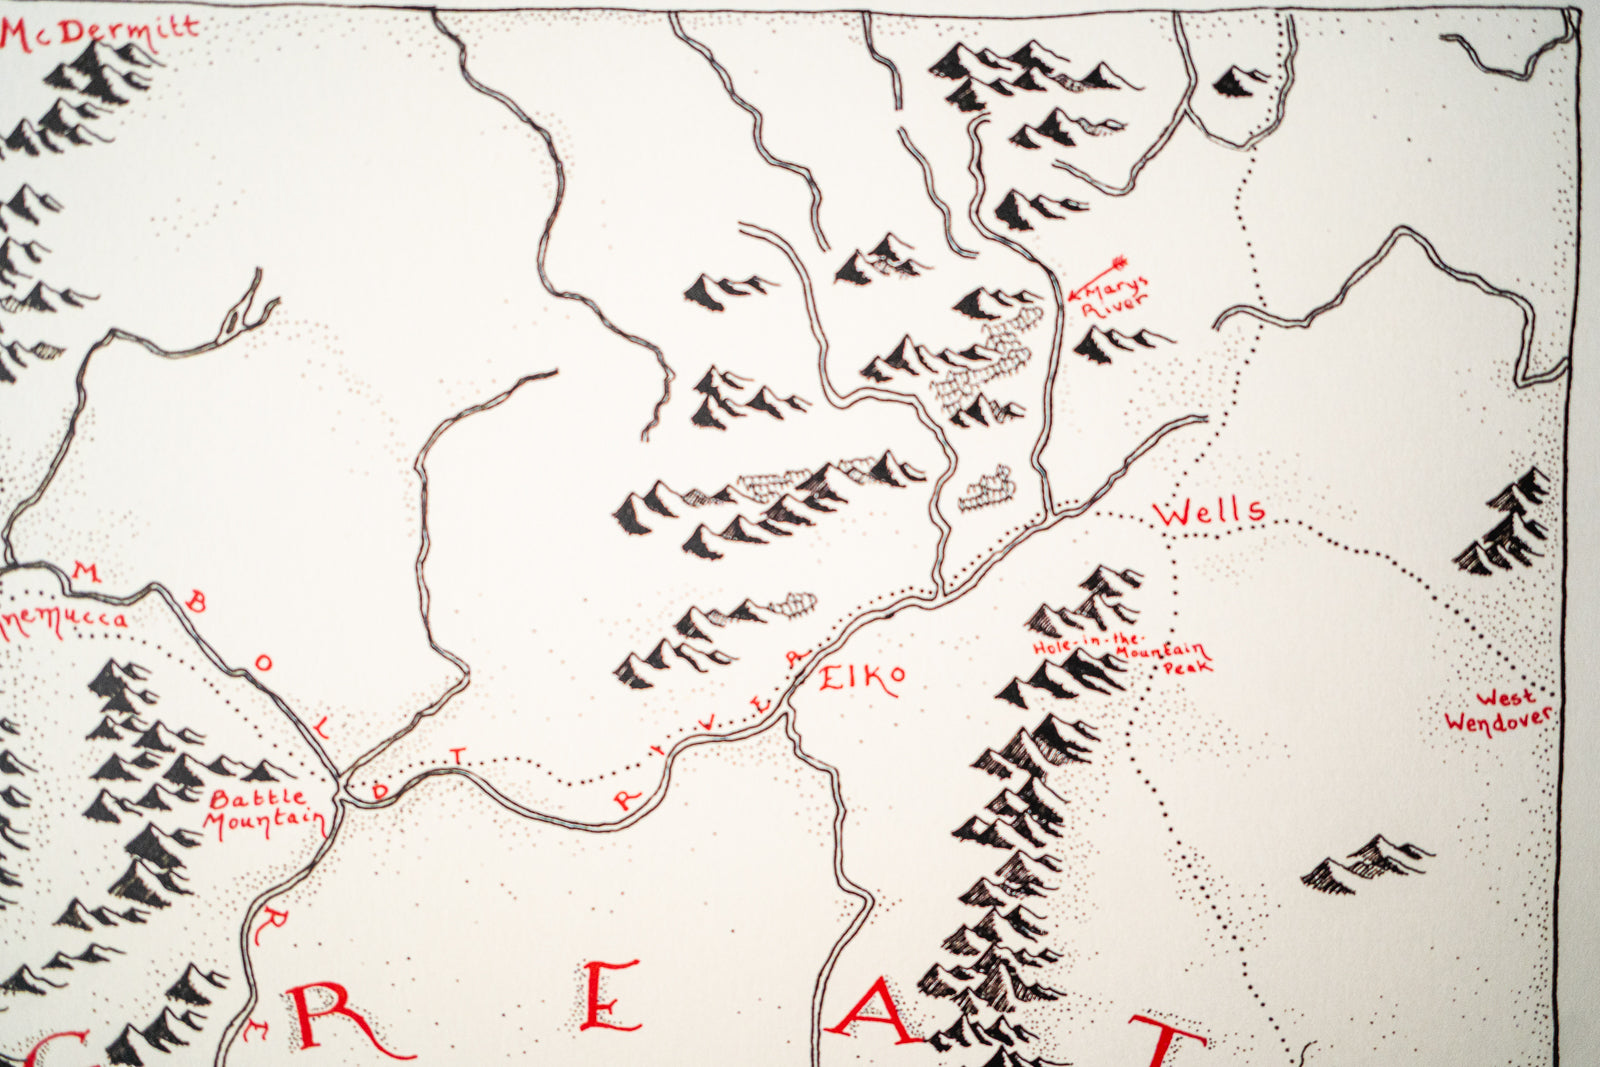 McDermitt
Marys
River
Wells
nnemucca
HUMBOLDT RIVER
Hole-in-the-
Mountain
Peak
Elko
West
Wendover
Battle
Mountain
GREAT